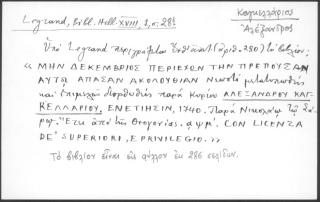 Legrand, Bibl. Hell. XVIII, 1, σ. 281
Καγκελλάριος
Ἀλέξανδρος
Ὑπὸ Legrand περιγράφεται ἐνθ' ἀνωτ. (ἀριθ. 280) τὸ βιβλίον:
«ΜΗΝ ΔΕΚΕΜΒΡΙΟΣ ΠΕΡΙΕΧΩΝ ΤΗΝ ΠΡΕΠΟΥΣΑΝ
ΑΥΤΩ ΑΠΑΣΑΝ ΑΚΟΛΟΥΘΙΑΝ Νεωστὶ μετατυπωθεὶς
καὶ ἐπιμελῶς διορθωθεὶς παρὰ Κυρίου ΑΛΕΞΑΝΔΡΟΥ ΚΑΓ-
ΚΕΛΛΑΡΙΟΥ, ΕΝΕΤΙΗΣΙΝ, 1740. Παρὰ Νικολάῳ τῷ Σά-
ρῳ. Ἔτει ἀπὸ τῆς Θεογονίας. αψμ'. CON LICENZA
DE' SUPERIORI, E PRIVILEGIO.»
Τὸ βιβλίον εἶναι εἰς φύλλον ἐκ 286 σελίδων.